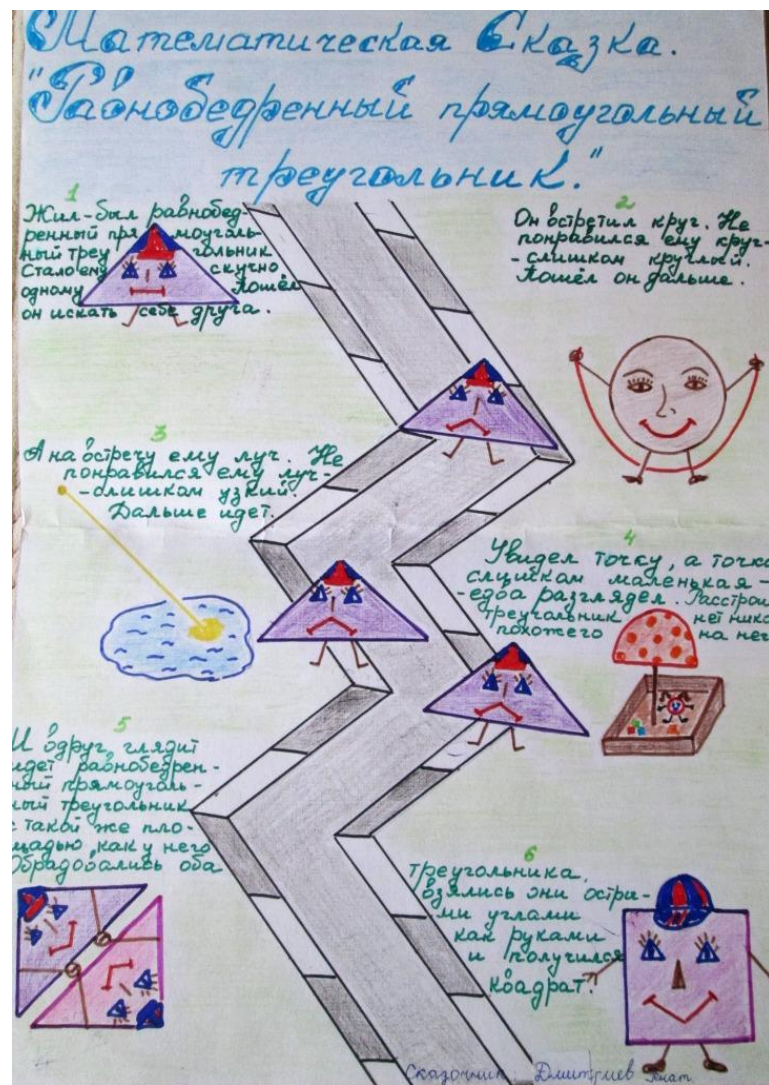 Математическая Сказка.
"Равнобедренный прямоугольный
треугольник."
1
Жил-был равнобед-
ренный прямоуголь-
ный треугольник
Стало ему скучно
одному Пошёл
он искать себе друга.
2
Он встретил круг. Не
понравился ему круг-
-слишком круглый.
Пошёл он дальше.
3
А на встречу ему луч. Не
понравился ему луч-
-слишком узкий.
Дальше идет.
4
Увидел точку, а точка
слишком маленькая-
-едва разглядел. Расстрои
треугольник нет нико
похожего на нег
5
И вдруг, глядит
идет равнобедрен-
ный прямоуголь-
ный треугольник
с такой же пло-
щадью, как у него
Обрадовались оба
6
треугольника,
взялись они остры-
ми углами
как руками
и получился
квадрат.
Сказочник: Дмитриев